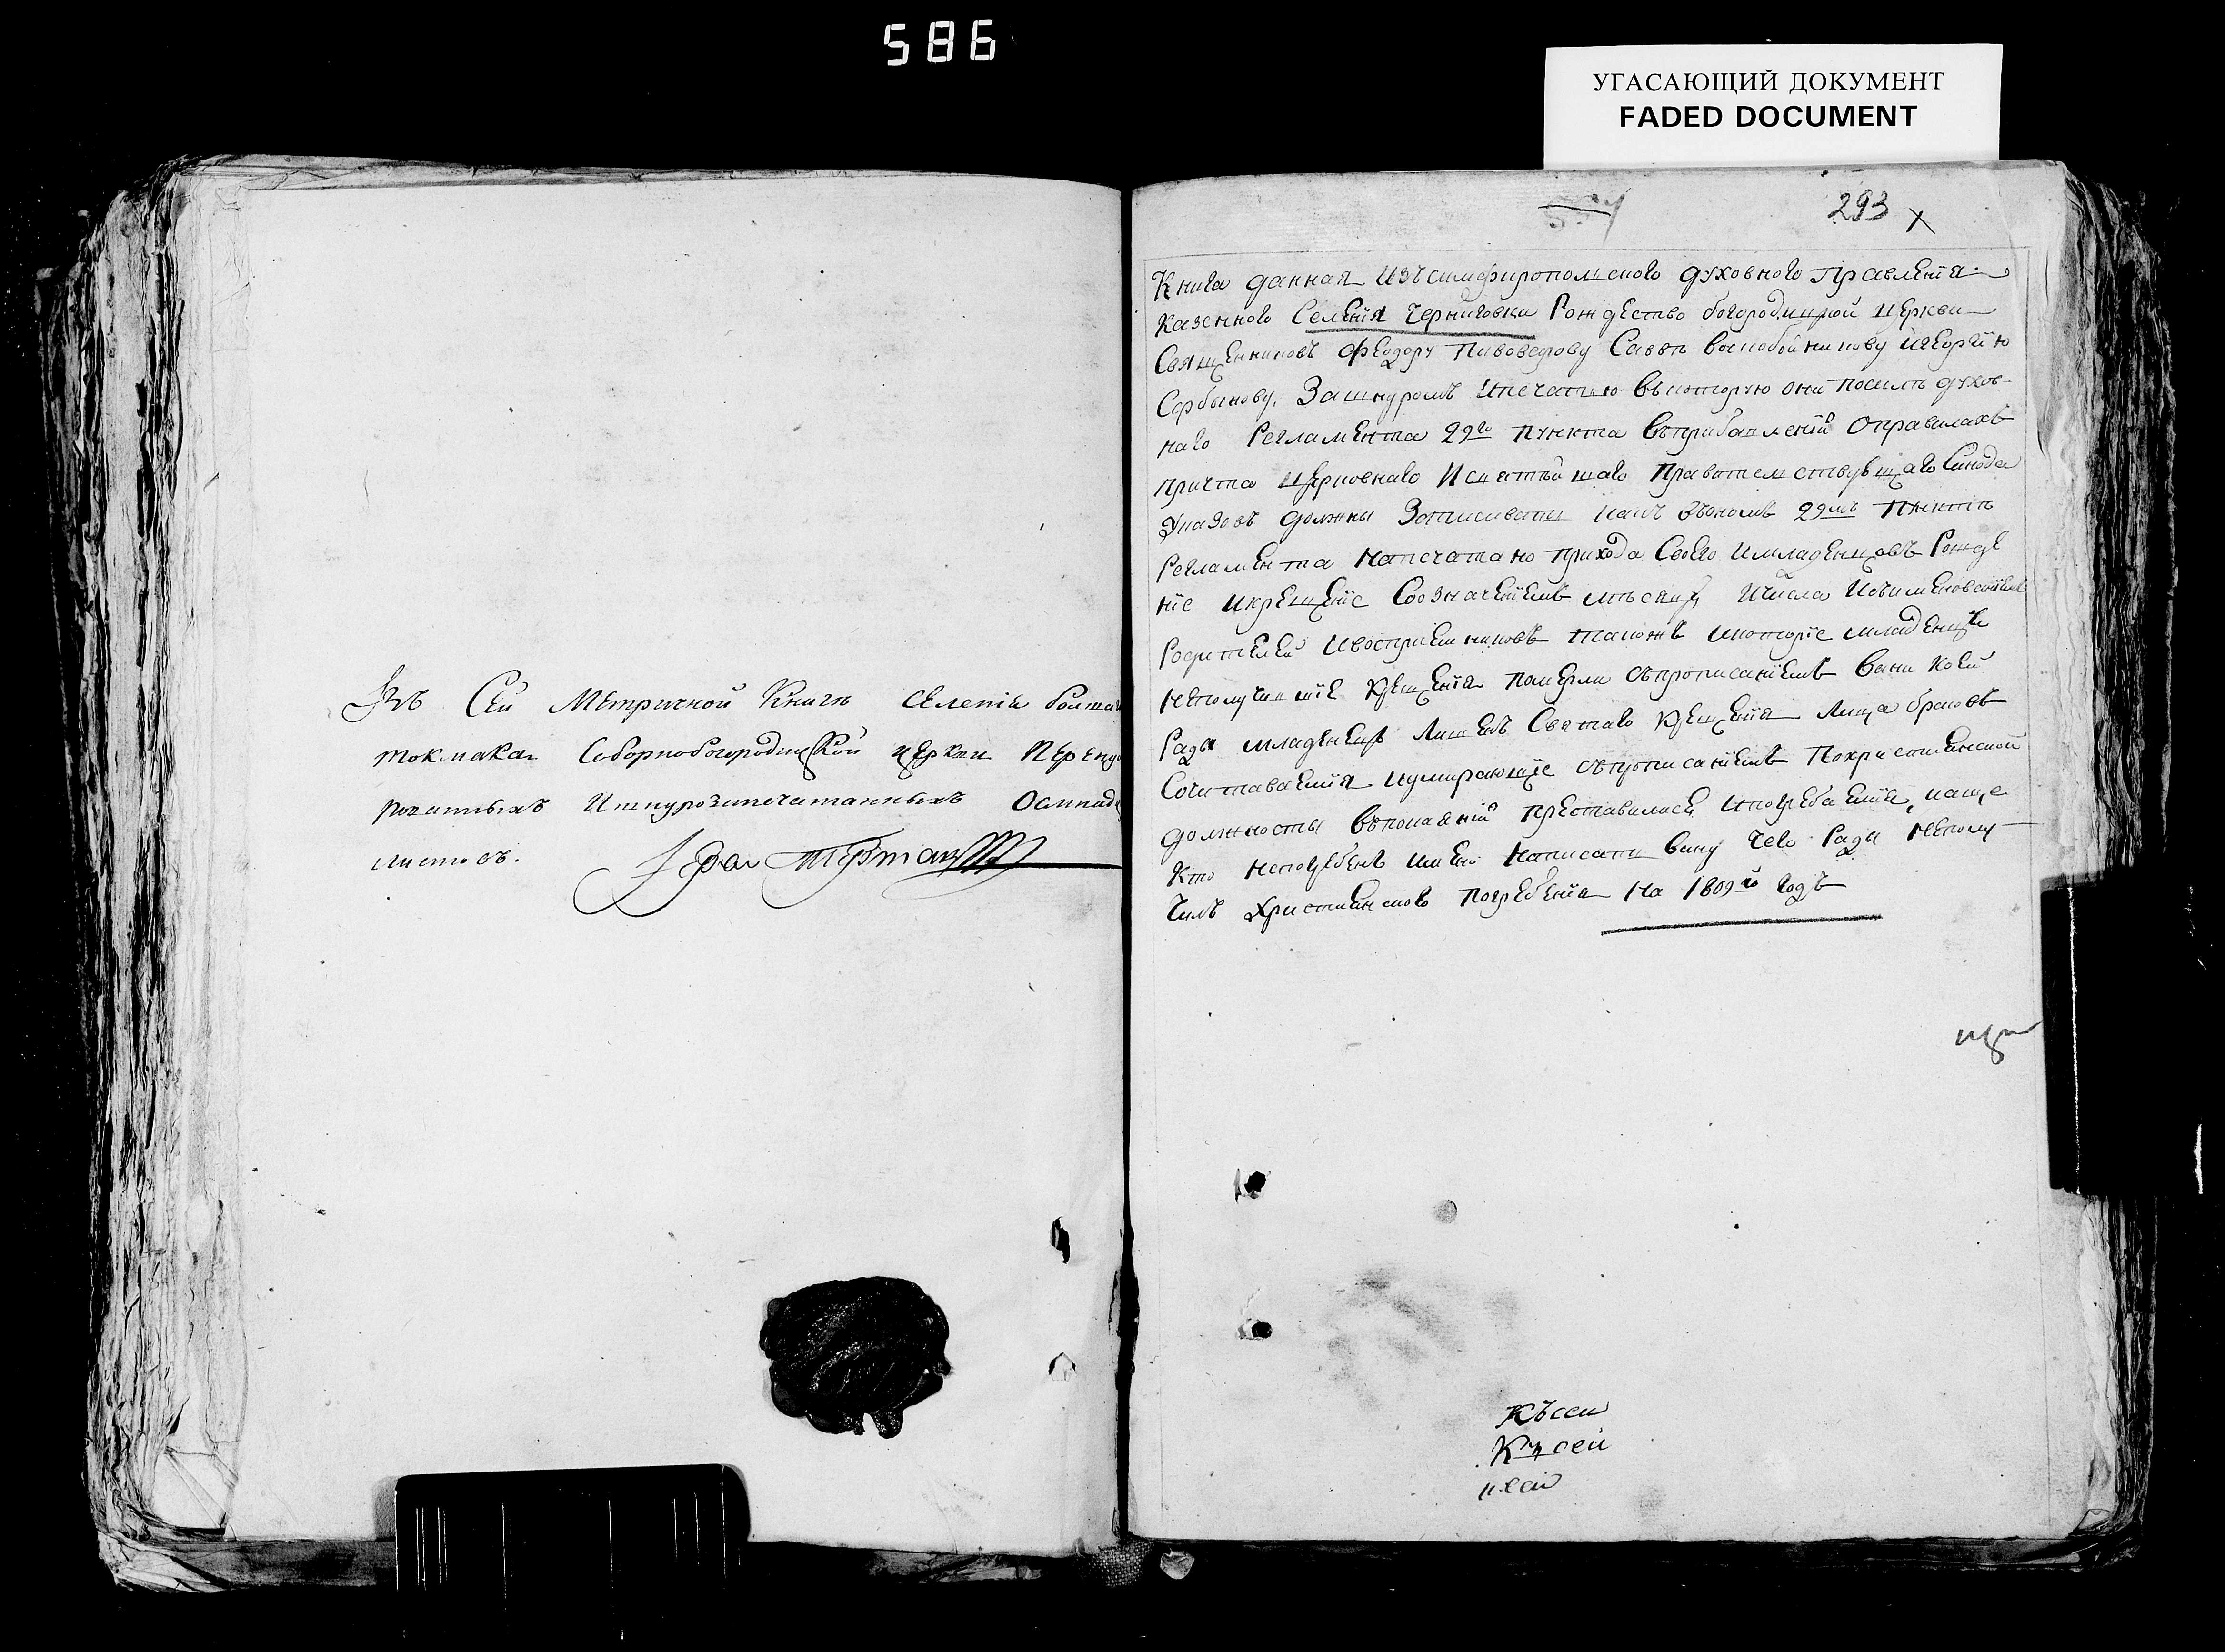 586
УГАСАЮЩИЙ ДОКУМЕНТ
FADED DOCUMENT
293
Въ Сей Метричной Книги селенія болша
токмака Соборнобогородицкой церкви перену
рованныхъ Ишнурозапечатанныхъ Осмнад
листовъ.
Книга данная Изъ симферополского духовного Правленія
Казенного Селенія Черниговки Рождество богородицкой церкви
Священниковъ Феодору Пивоварову Савве воскобойникову игеоргію
Сербинову. Зашнуромъ ипечатью вкоторую они посилѣ духов-
наго Регламента 29го пункта вприбавленій оправилахъ
причта церковнаго Исвятѣйшаго Правителствующаго Синода
Указовъ должны Записивать какъ вономъ 29мъ пунктѣ
Регламента напечатано прихода Своего Имладенцовъ Рожде
ніе икрещеніе Соозначеніемъ мѣсяца Ичисла Исъименованіемъ
Родителей ивоспріемниковъ такожъ икоторіе младенцы
неполучившіе крещенія померли съпрописаніемъ вини коей
Ради младенецъ Лишенъ Святаго крещенія Лица браковъ
Сочитаваемія иумирающіе съпрописаніемъ Похристіанской
должности въпокаяніи преставилися ипогребаемія, иаще
Кто непогребенъ имено написать вину чего Ради неполу-
чилъ Христіанского погребенія на 1809й годъ
Къ сей
Къ сей